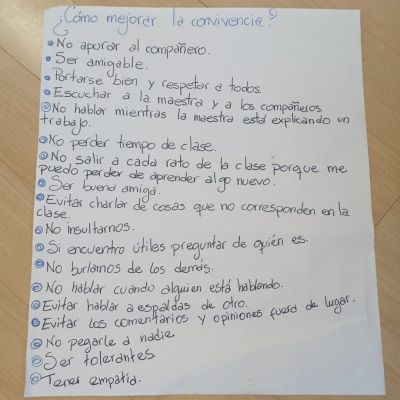 ¿Cómo mejorar la convivencia?
No apurar al compañero.
Ser amigable.
Portarse bien y respetar a todos.
Escuchar a la maestra y a los compañeros
No hablar mientras la maestra está explicando un
trabajo.
No perder tiempo de clase.
No salir a cada rato de la clase porque me
puedo perder de aprender algo nuevo.
Ser buena amiga.
Evitar charlar de cosas que no corresponden en la
clase.
No insultarnos.
Si encuentro útiles preguntar de quién es.
No burlarnos de los demás.
No hablar cuando alguien está hablando.
Evitar hablar a espaldas de otro.
Evitar los comentarios y opiniones fuera de lugar.
No pegarle a nadie
Ser tolerantes
Tener empatía.